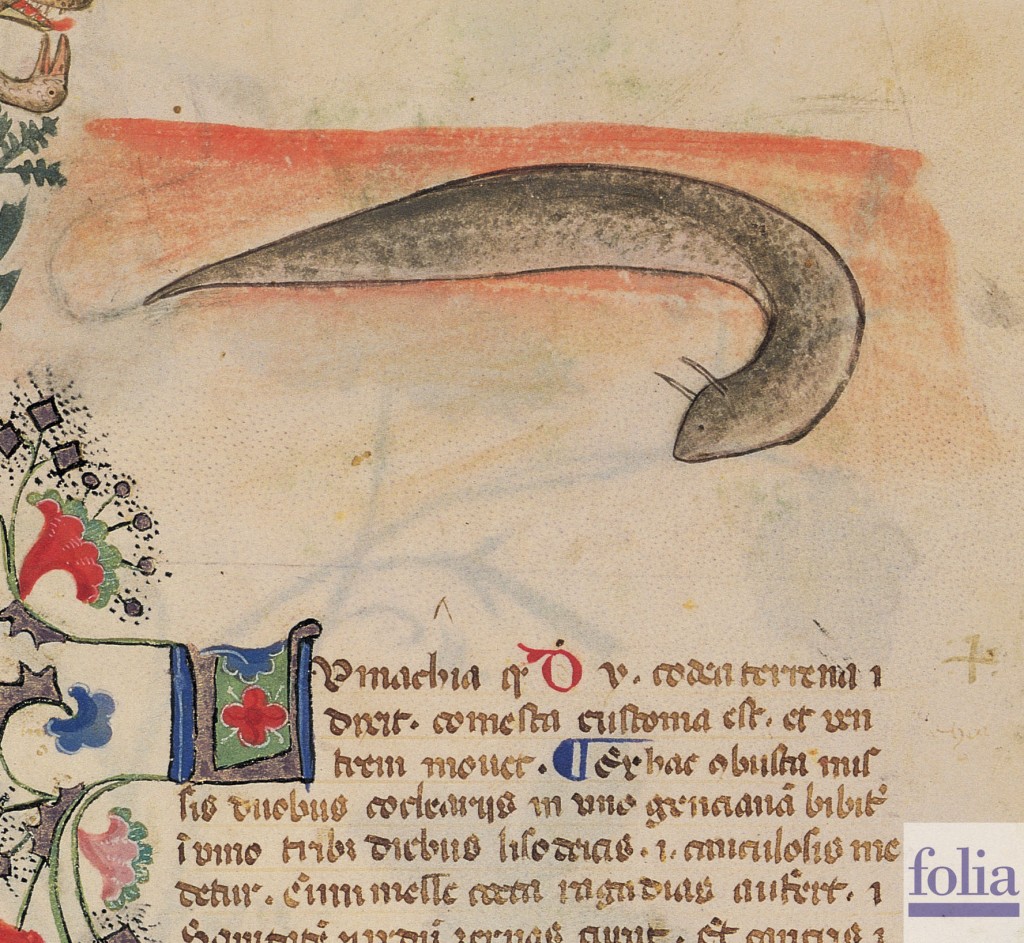 Vmachia qͥ D v. coclea terrena i
dixit. comesta eustoma est. et ven
trem mouet. ¶ Ex hac obusta mis
sis duobus coclearijs in uno gencianā bibit᷑
ī vino tribȝ diebus lisotricis. i. cauculosis me
detur. Cum melle cocta ragadias aufert. i
folia